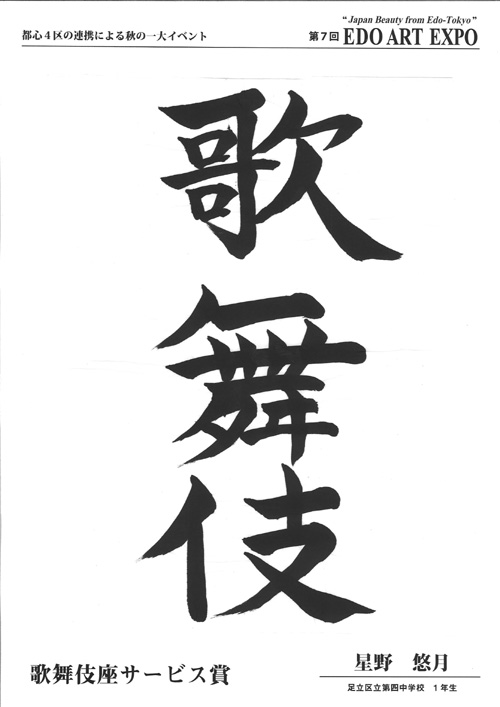 都心４区の連携による秋の一大イベント
"Japan Beauty from Edo-Tokyo"
第７回 EDO ART EXPO
歌
舞
伎
歌舞伎座サービス賞
星野　悠月
足立区立第四中学校　１年生